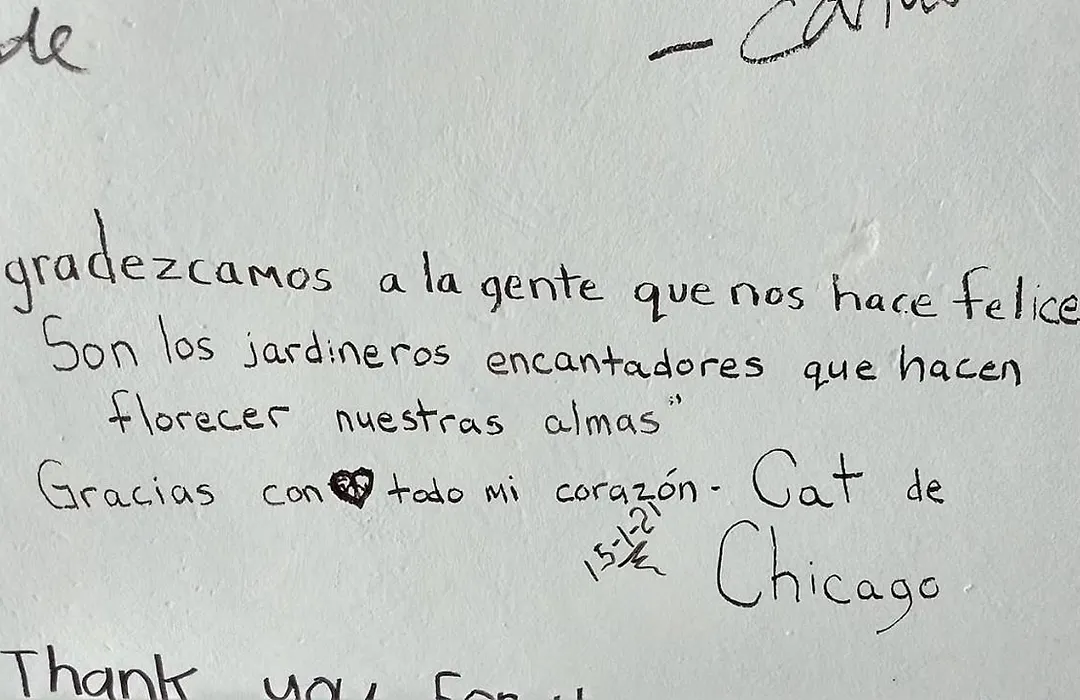 de
gradezcamos a la gente que nos hace felice
Son los jardineros encantadores que hacen
florecer nuestras almas"
Gracias con todo mi corazón - Cat de
Chicago
15-1-21
Thank you for